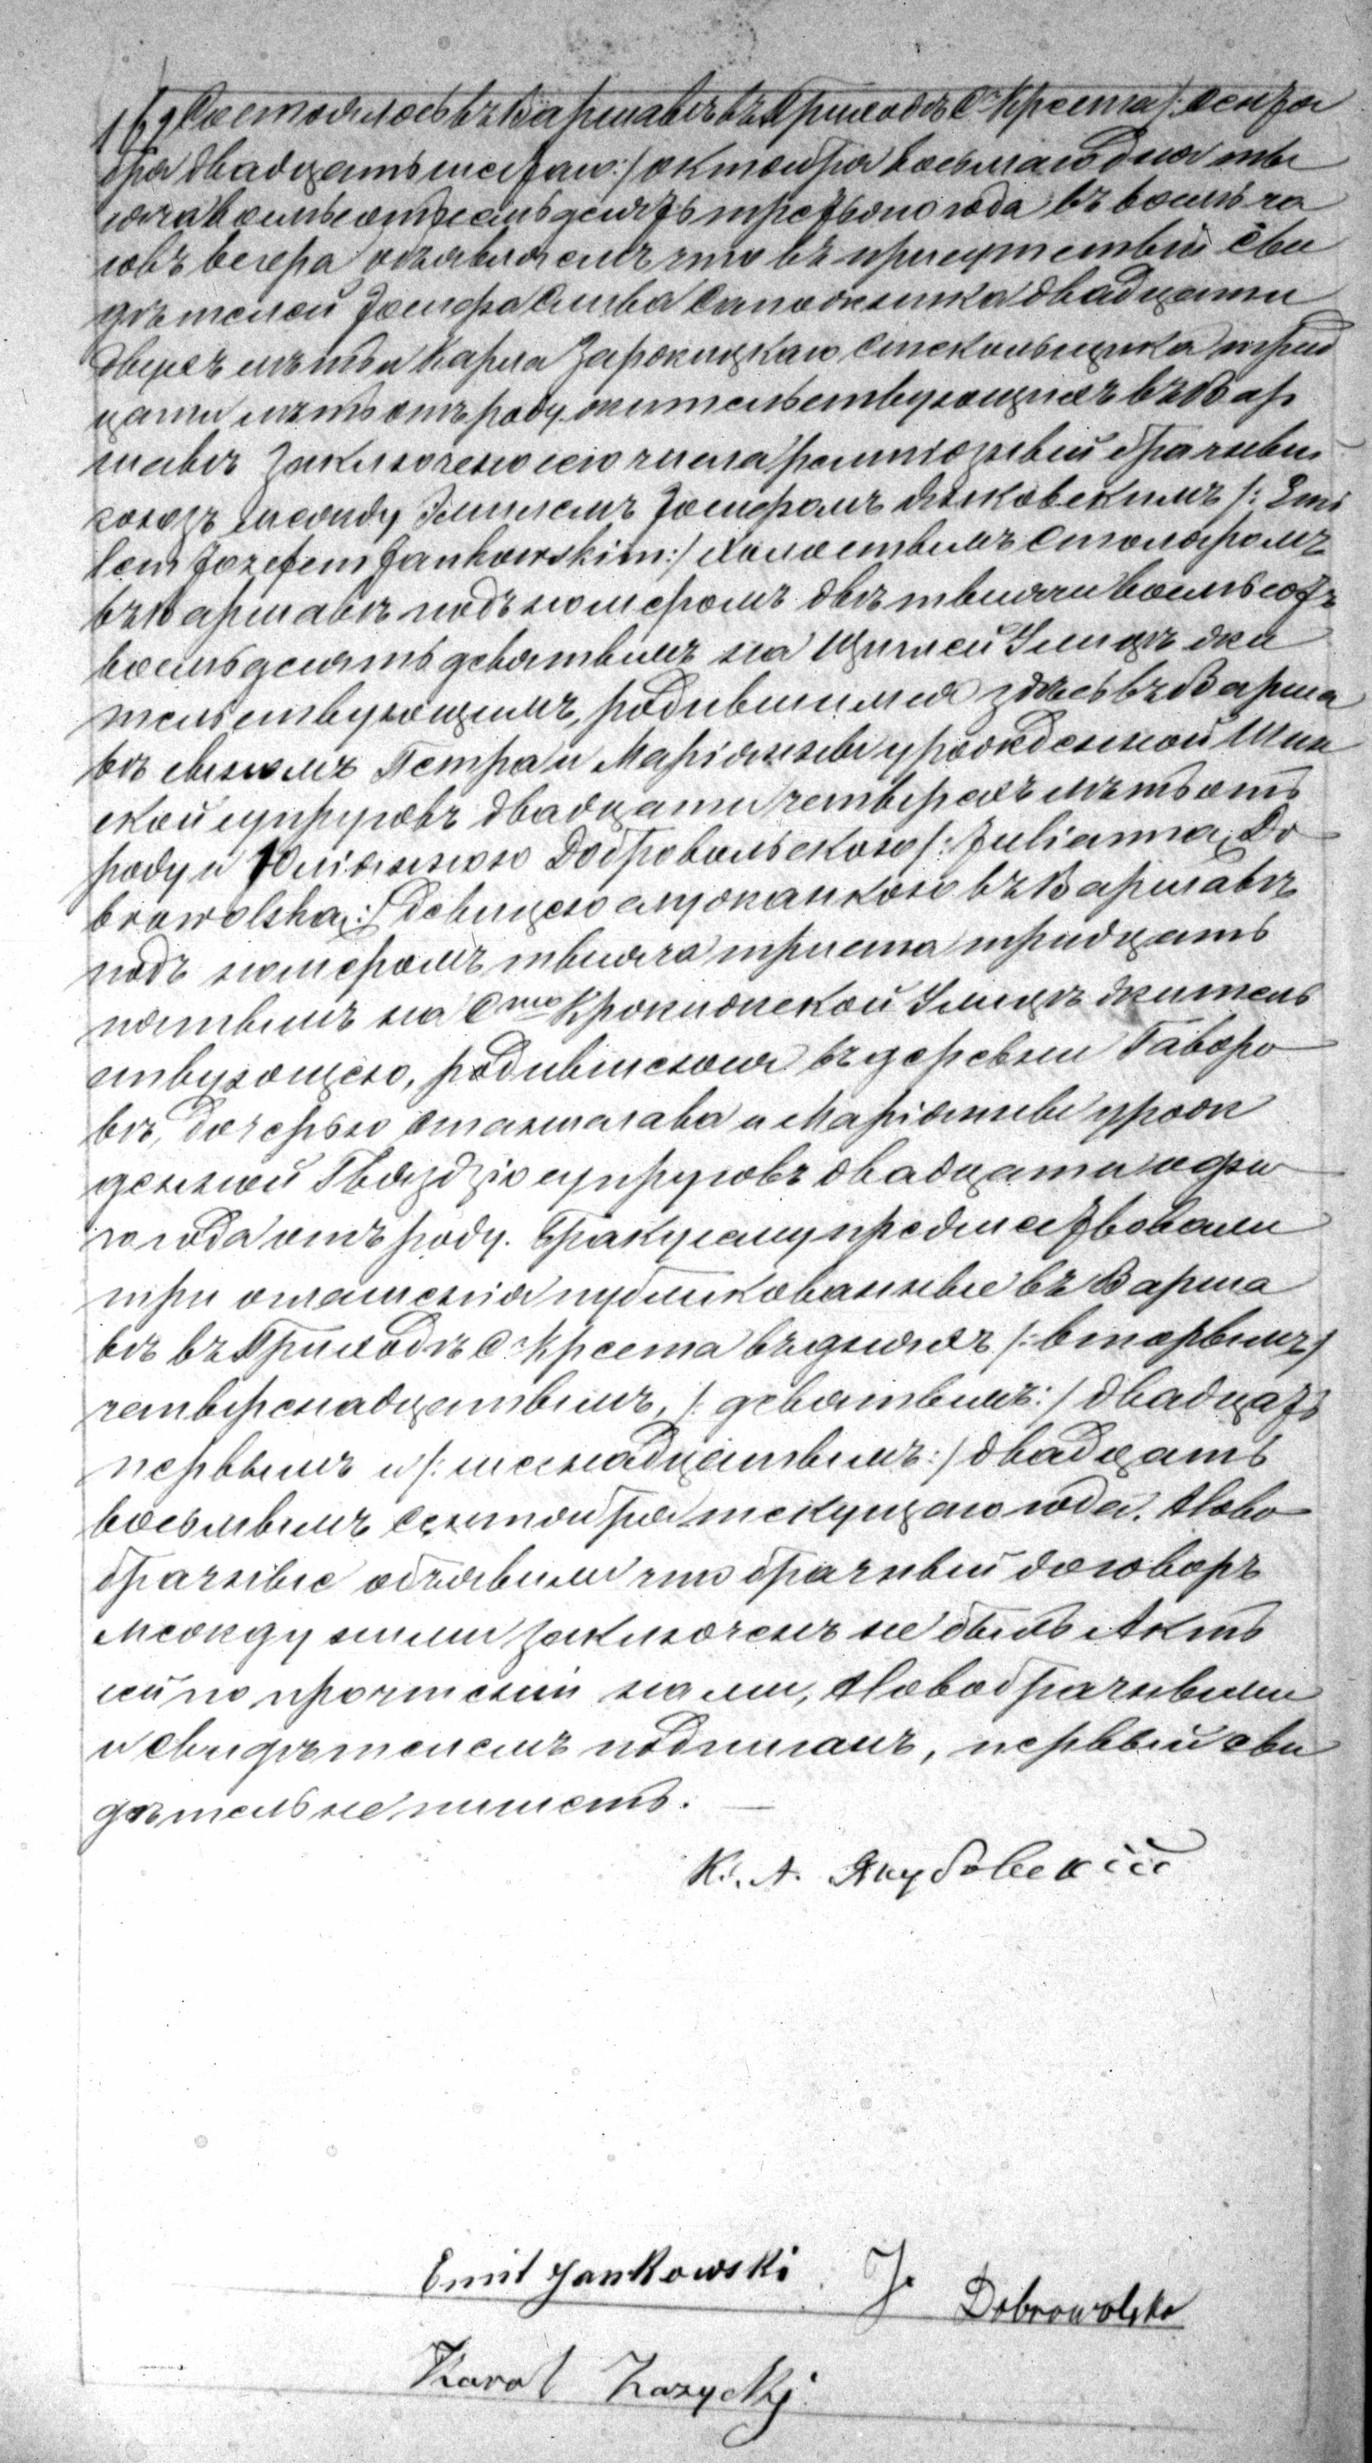 169 Состоялось въ Варшавѣ въ Приходѣ Св. Креста /: Сентя
бря двадцать шестаго :/ октября восьмаго дня ты
сяча восемьсотъ семьдесятъ третьяго года въ восемь ча
совъ вечера объявляемъ что въ присутствіи сви
дѣтелей Іосифа Сапожника двадцати
двухъ лѣтъ и Карла Стекольщика трид
цати лѣтъ отъ роду жительствующихъ въ Вар
шавѣ заключено сего числа религіозный брачный
союзъ между Эмилемъ Іосифомъ Янковскимъ /: Emi
lem Józefem Jankowskim :/ холостымъ столяромъ
въ Варшавѣ подъ номеромъ двѣ тысячи восемьсотъ
восемьдесятъ девятымъ на Улицѣ жи
тельствующимъ, родившимся здѣсь въ Варша
вѣ сыномъ Петра и Маріянны урожденной
ской супруговъ двадцати четырехъ лѣтъ отъ
роду и Юліянною Добровольскою /: Julianną Do
browolską :/ девицею служанкою въ Варшавѣ
подъ номеромъ тысяча триста тридцать
пятымъ на Сто Крожижской Улицѣ житель
ствующею, родившеюся въ деревни Гаворо
вѣ, дочерью Станислава и Маріянны урож
денной супруговъ двадцати одно
го года отъ роду. Браку сему предшествовали
три оглашенія публикованные въ Варша
вѣ въ Приходѣ Св. Креста въ дняхъ /: вторымъ :/
четырнадцатымъ, /: девятымъ :/ двадцать
первымъ и /: шестнадцатымъ :/ двадцать
восьмымъ сентября текущаго года. Ново
брачные объявили что брачный договоръ
между ними заключенъ не былъ Актъ
сей по прочтеніи нами, Новобрачными
и свидѣтелемъ подписанъ, первый сви
дѣтель не пишетъ.
К. А. Якубовскій
Emil Jankowski J. Dobrowolska
Karol